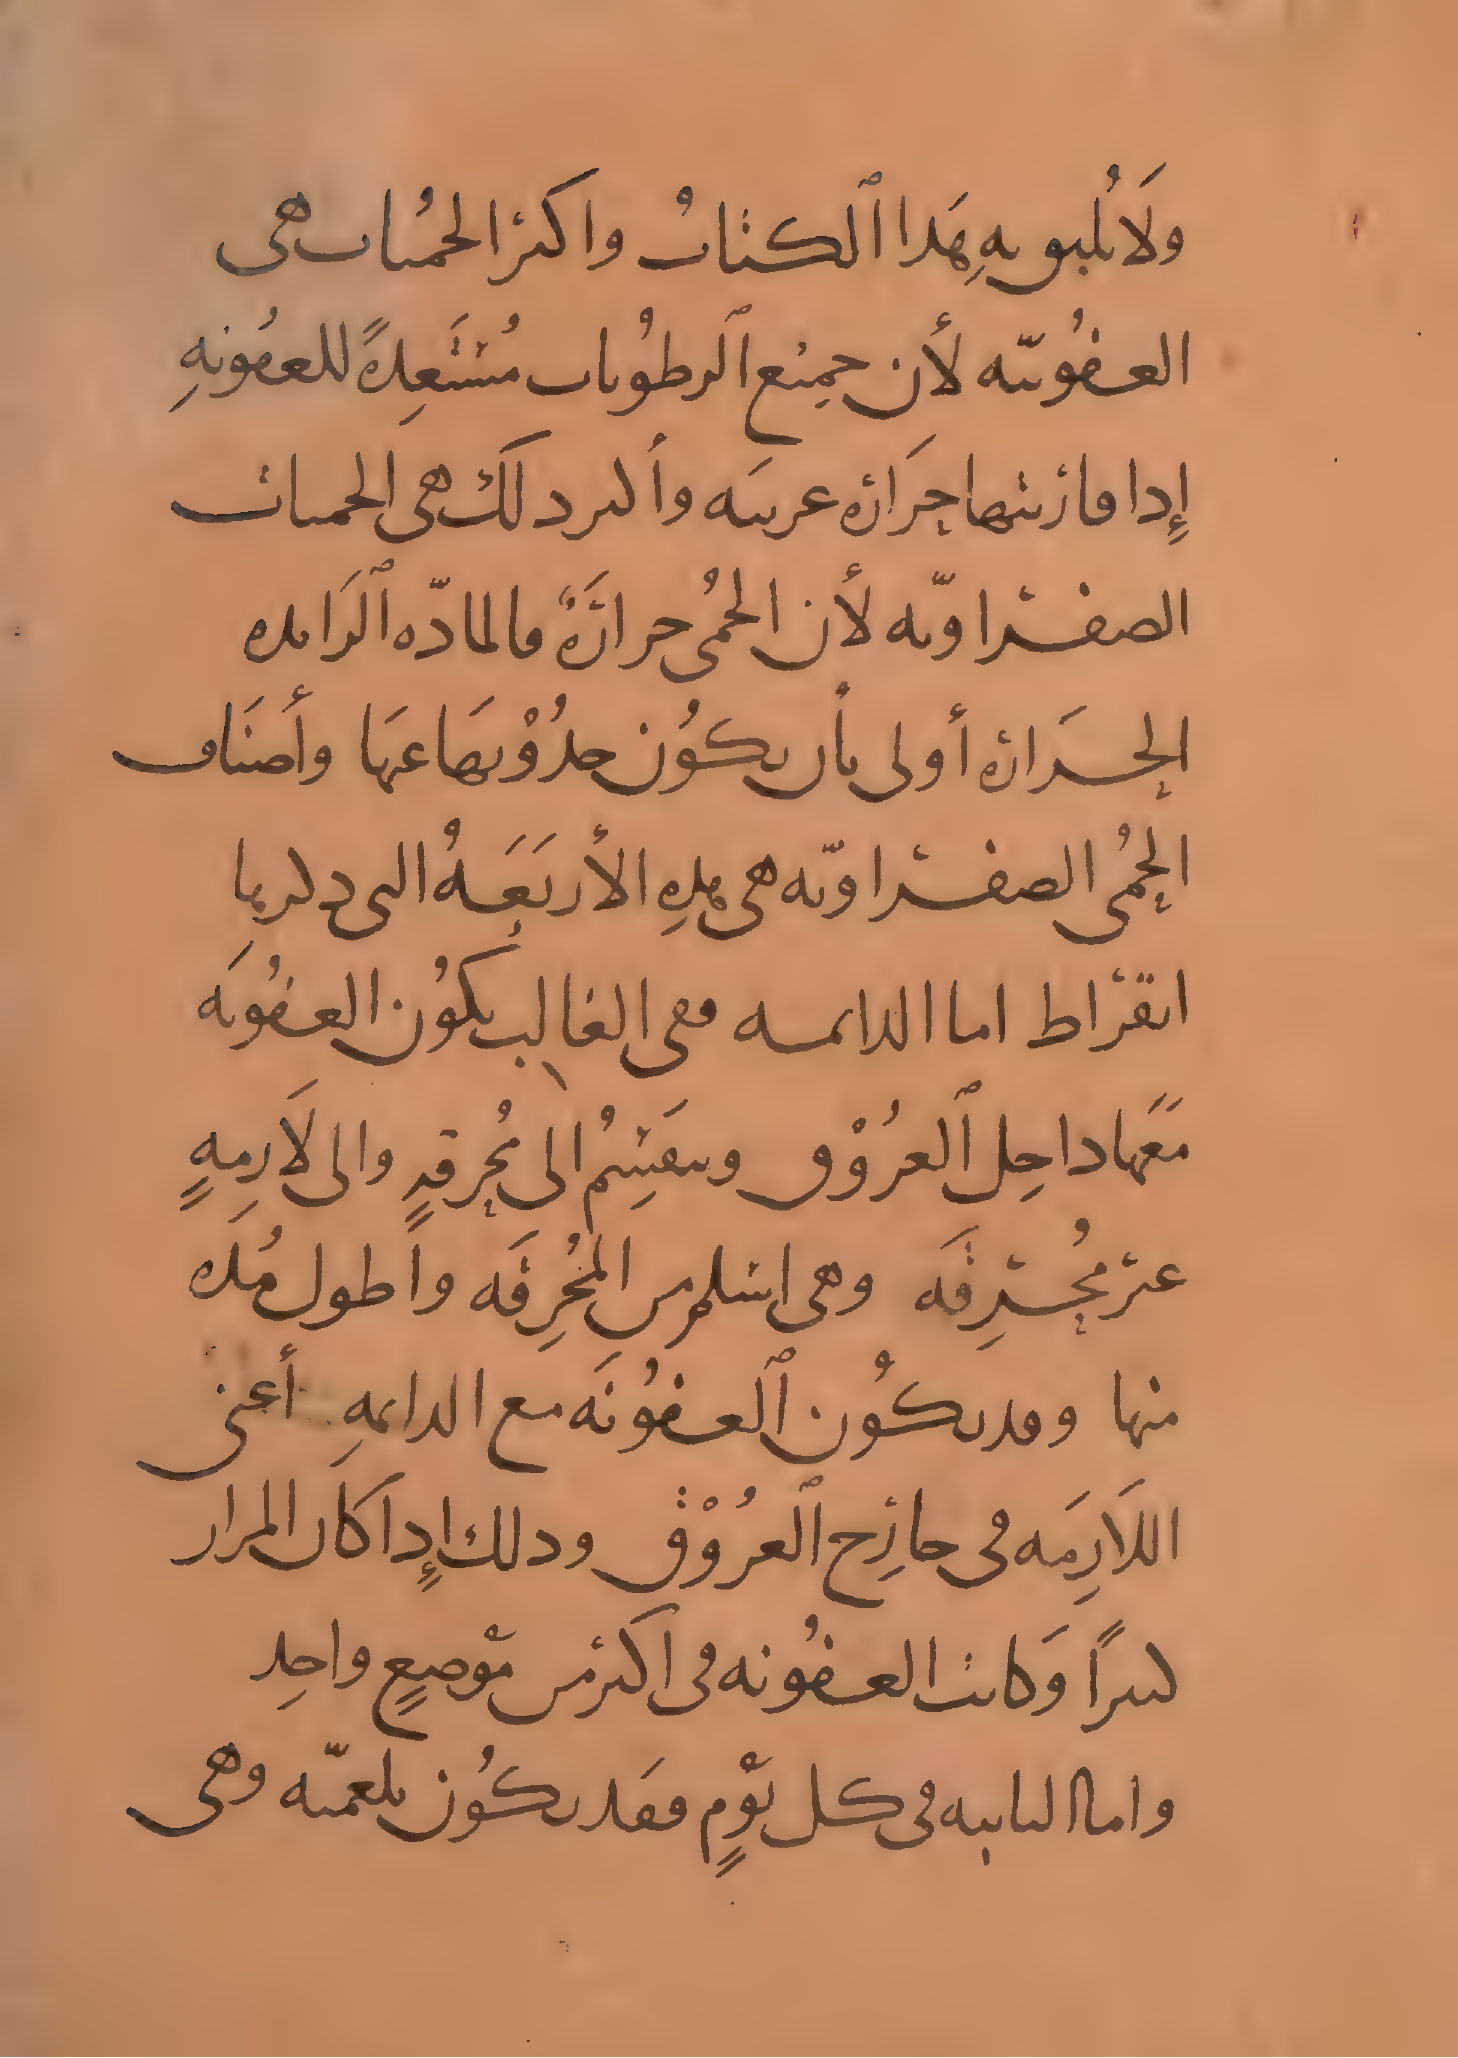 ولَا يُليق به بهَذا ٱلكتابُ واكثر الحمُيات هى
العفُونيّه لأن جميع ٱلرطوُبات مُسْتَعِدةً للعفُونهِ
إِذا قارنتها حَرَارَة غريبَه وأكثر ذلَك هى الحميات
الصفراويّه لأن الحمُى حرارَةٌ فالمادّه ٱلزَايده
الحَراره أولى بأن يكُون حدُوْثهَا عنهَا وأصنَاف
الحمُى الصفراويّه هى هذِه الأربَعَةُ التى ذكرها
ابقراط اما الدايمه ففى الغالب يكوُن العفُونَه
مَعَها داخِل ٱلعرُوْق وينقَسِمُ الى مُحرقهٍ والى لَازمهٍ
غير مُحرِقَه وهى اسلم من المُحرِقَه واطول مُده
منها وقد يكُون ٱلعفوُنَه مع الدايمهِ أعنى
اللَازِمَه فى خارج ٱلعرُوْق وذلك إِذا كان المرار
كثيراً وَكانت العفُونه فى اكثر من موْضعٍ واحِد
واما النايبه فى كل يوْمٍ فقَد يكُون بلغميّه وهى